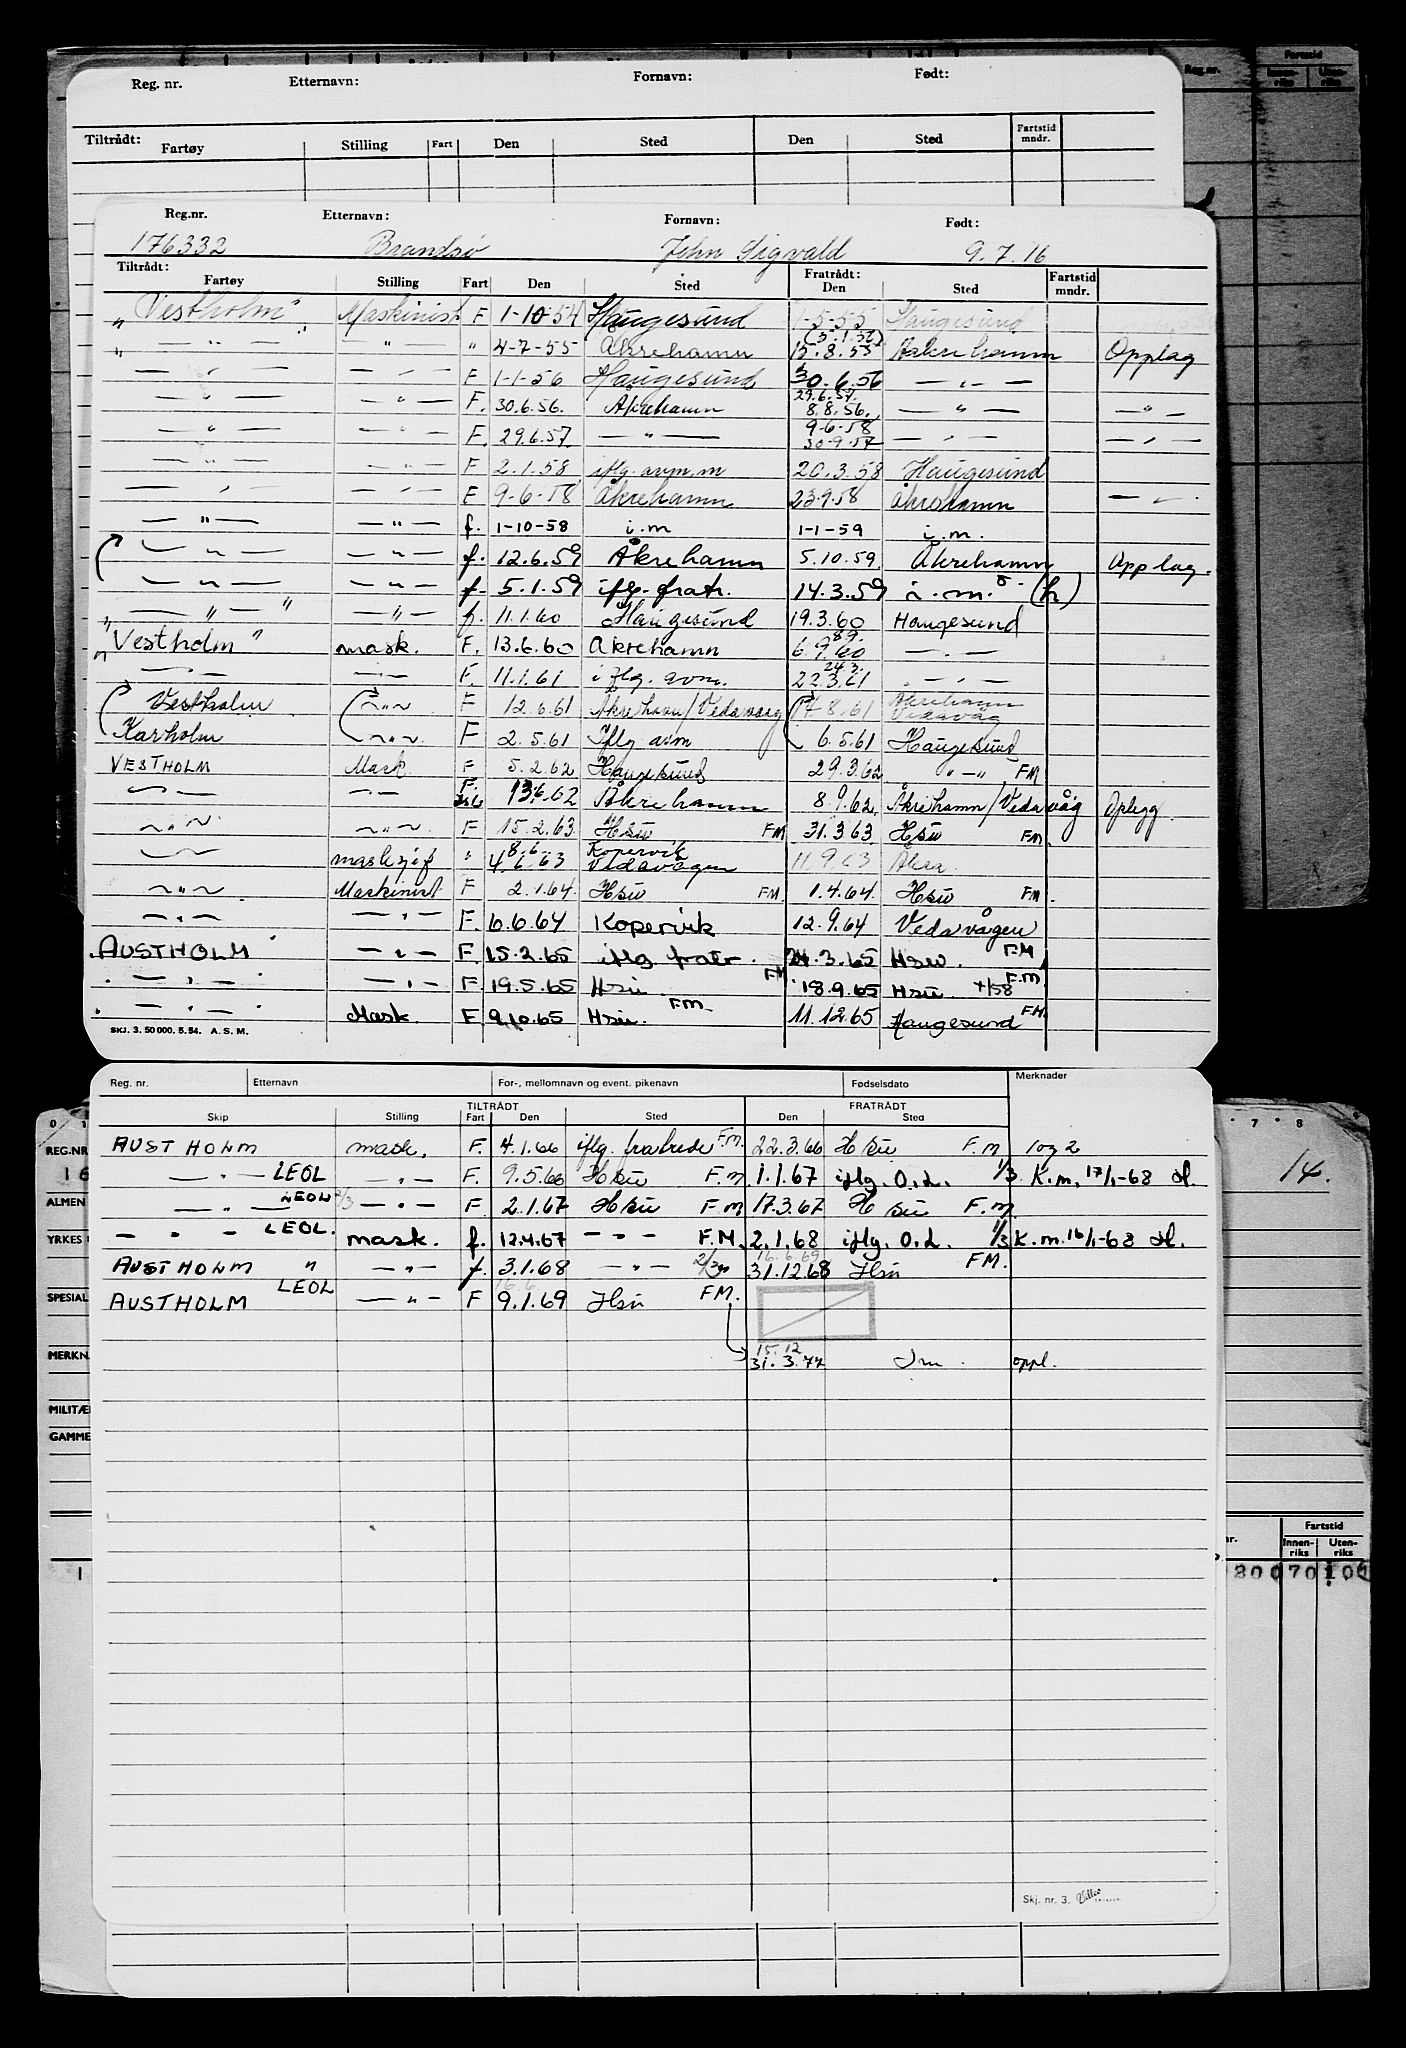 Reg. nr. Etternavn: Fornavn: Født:
Reg.nr. Fartstid
Innen-riks Uten-riks
Tiltrådt: Fartøy Stilling Fart Den Sted Den Sted Fartstid mndr.
Reg.nr. Etternavn: Fornavn: Født:
176332 Brandsø John Sigvald 9.7.16
Tiltrådt: Fartøy Stilling Fart Den Sted Fratrådt: Den Sted Fartstid mndr.
"Vestholm" Maskinist F 1-10-54 Haugesund 1-5-55 Haugesund
" — " — — " — " 4-7-55 Åkrehamn (5.1.56) 15.8.55 Aakrehamn Opplag
— " — — " — F 1-1-56 Haugesund 30.6.56 — " —
— " — — " — F. 30.6.56. Åkrehamn 29.6.57. 8.8.56. — " — — " —
— " — — " — F. 29.6.57 — " — 9-6-58 30.9.57 — " — — " —
— " — — " — F 2.1.58 iflg. avm.m 20.3.58 Haugesund
— " — — " — F 9-6-58 Åkrehamn 23.9.58 Åkrehamn — " —
— " — — " — f. 1-10-58 i.m 1-1-59 i.m.
— " — — " — f. 12.6.59 Åkrehamn 5.10.59 Åkrehamn Opplag.
— " — — " — f. 5.1.59 iflg. fratr. 14.3.59 i.m. (h)
— " — " — " — f. 11.1.60 Haugesund 19.3.60 Haugesund
"Vestholm" mask. F. 13.6.60 Åkrehamn 8.9. 6.9.60 — " —
" — " — — " — F. 11.1.61 iflg. avm. 24.3. 22.3.61 — " —
Vestholm — " — F 12.6.61 Åkrehavn/Vedavaag 17.8.61 Åkrehamn Vedavåg
Karholm — " — F 2.5.61 Iflg avm 6.5.61 Haugesund
VESTHOLM Mask F 5.2.62 Haugesund 29.3.62 " — " FM
— " — — " — F. 13.6.62 Åkrehamn 8.9.62. Åkrehamn/Vedavåg Oplegg
— " — — " — F 15.2.63 Hsu FM 31.3.63. Hsu FM.
— " — maskinsjef " 8.6. 4.6.63 Kopervik Vedavågen 11.9.63 Åkra
— " — Maskinist F 2.1.64. Hsu FM 1.4.64. Hsu FM.
— " — — " — F. 6.6.64 Kopervik 12.9.64 Vedavågen
AUSTHOLM — " — F. 15.2.65 iflg fratr. 24.3.65 Hsu. F.M
— " — — " — F. 19.5.65 Hsu FM 18.9.65 Hsu +/58 F.M
— " — Mask. F. 9.10.65 Hsu. FM. 11.12.65 Haugesund FM.
SKJ. 3. 50 000. 5. 54. A. S. M.
Reg. nr. Etternavn For-, mellomnavn og event. pikenavn Fødselsdato Merknader
TILTRÅDT FRATRÅDT
Skip Stilling Fart Den Sted Den Sted
AUSTHOLM mask. F. 4.1.66 iflg. fratrede F.M. 22.3.66 Hsu F.M 1og2
— " — LEOL — " — F. 9.5.66 Hsu F.M 1.1.67 iflg. O.L. 1/3 K.m. 17/1-68 H.
— " — LEOL 2/3 — " — F 2.1.67 Hsu F.M 17.3.67 Hsu F.M.
— " — LEOL. mask. f. 12.4.67 — " — F.M. 2.1.68 iflg. O.L. 1/3 K.m. 16/1-68 H.
AUSTHOLM " — " — f. 3.1.68 — " — 16.6.69 31.12.68 Hsu FM.
AUSTHOLM LEOL — " — F 9.1.69 Hsu FM.
15.12 31.3.77 Im. oppl.
Skj. nr. 3.
0 1
7 8 9
REG.NR
16
14.
ALMEN
YRKES
SPESIAL
MERKN.
MILITÆ
GAMME
Fartstid
nr. Innen-riks Uten-riks
1